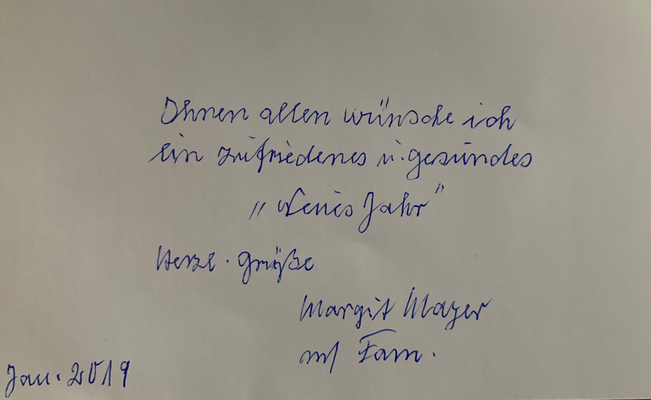 Ihnen allen wünsche ich
ein zufriedenes u. gesundes
„Neues Jahr"
Herzl. Grüße
Margit Mayer
m/ Fam.
Jan. 2019